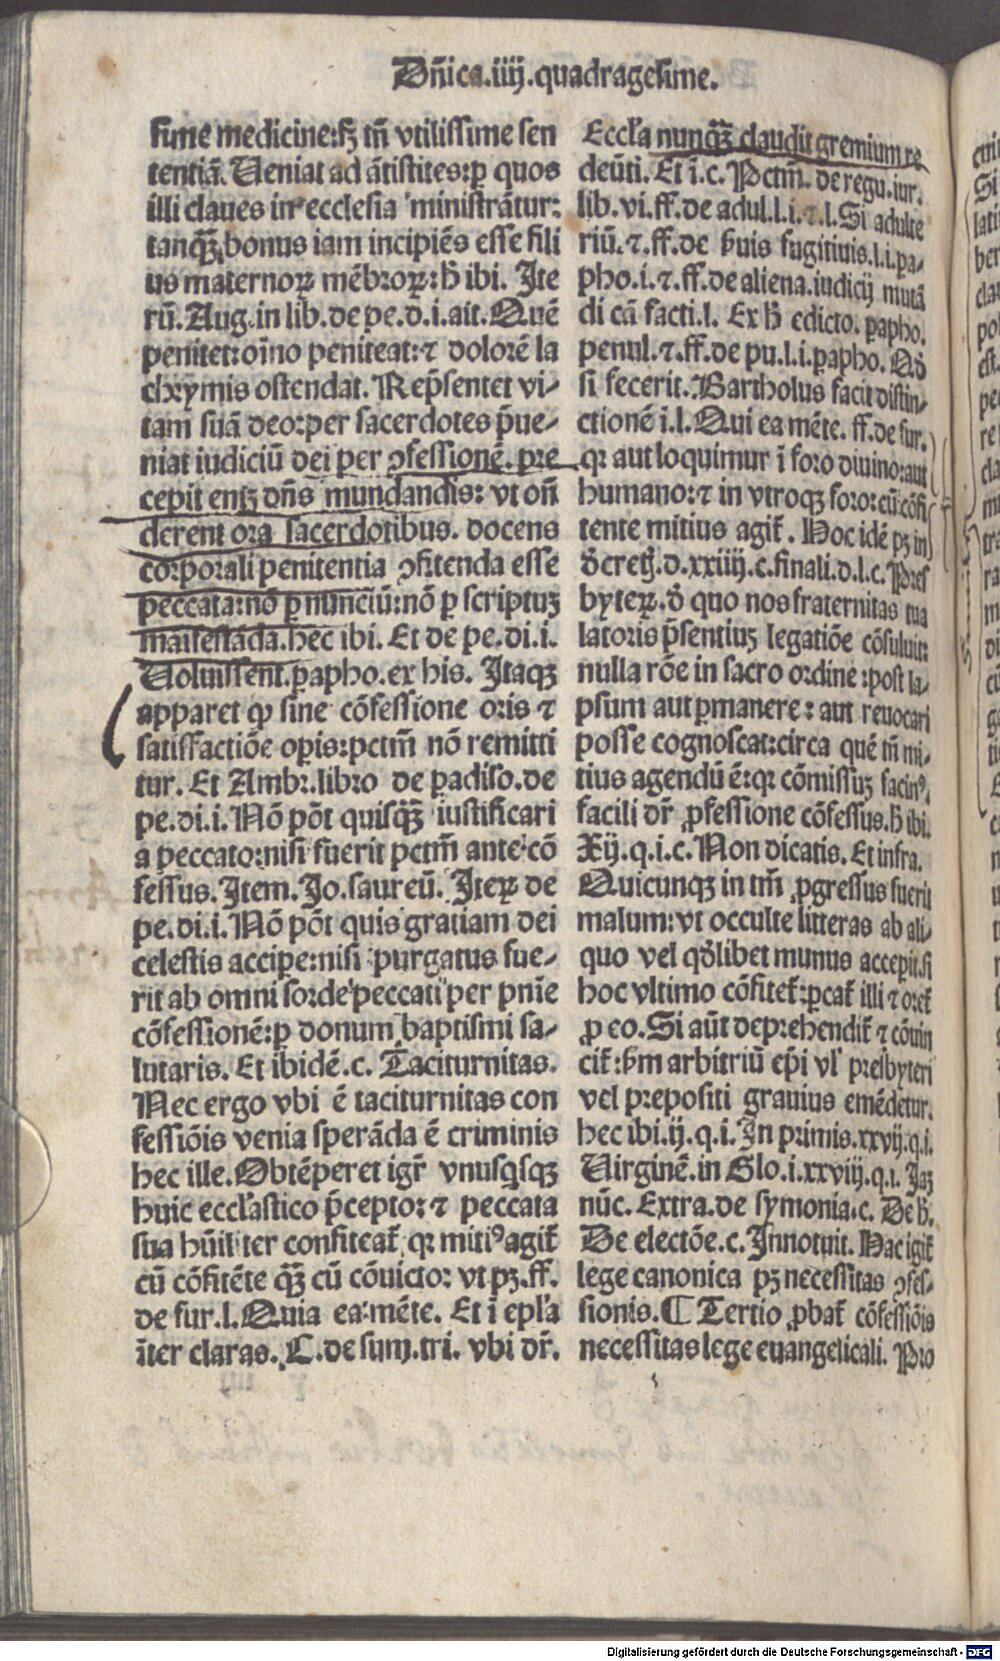 Dñica.iiij.quadragesime.
sime medicine:sꝫ tñ vtilissime sen
tentiã. Ueniat ad ãtistites:ꝑ quos
illi claues in ecclesia ministrãtur:
tanqꝫ̃ bonus iam incipiẽs esse fili
us maternoꝝ mẽbroꝝ:h̃ ibi. Ite
rũ. Aug.in lib.de pe.d.i.ait.Quẽ
penitet:oĩno peniteat:⁊ dolorẽ la
chrymis ostendat. Rep̃sentet vi-
tam suã deo:per sacerdotes p̃ue-
niat iudiciũ dei per ꝯfessionẽ.pre
cepit eniꝫ dñs mundandis: vt oñ
derent ora sacerdotibus. docens
corporali penitentia ꝯfitenda esse
peccata:nõ ꝑ nunciũ:nõ ꝑ scriptuꝫ
maĩfestãda.hec ibi. Et de pe.di.i.
Uoluissent.parapho.ex his. Itaqꝫ
apparet ꝙ sine cõfessione oris ⁊
satisfactiõe oꝑis:pctm̃ nõ remitti
tur. Et Ambr.libro de ꝑadiso.de
pe.di.i. Nõ põt quisqꝫ̃ iustificari
a peccato:nisi fuerit pctm̃ ante cõ
fessus. Item. Io.saureũ. Iteꝝ de
pe.di.i. Nõ põt quis gratiam dei
celestis accipe:nisi purgatus fue-
rit ab omni sorde peccati per pnĩe
cõfessionẽ:ꝑ donum baptismi sa-
lutaris. Et ibidẽ.c. Taciturnitas.
Nec ergo vbi ẽ taciturnitas con
fessiõis venia sperãda ẽ criminis
hec ille. Obtẽperet igr̃ vnusqsqꝫ
huic eccl'astico p̃cepto: ⁊ peccata
sua hũiliter confiteat̃ qꝛ miti⁹ agit̃
cũ cõfitẽte qꝫ̃ cũ cõuicto: vt pꝫ.ff.
de fur.l.Quia ea mẽte. Et ĩ epl'a
ĩter claras. C.de sum.tri. vbi dr̃.
Eccl'a nunqꝫ̃ claudit gremium re
deũti. Et ĩ.c. Pctm̃. de regu.iur.
lib.vi.ff.de adul.l.i.⁊.l. Si adulte
riũ.⁊.ff.de p̃uis fugitiuis.l.i.pa-
pho.i.⁊.ff.de aliena.iudicij mutã
di cã facti.l. Ex h̃ edicto. ꝑapho.
penul.⁊.ff.de pu.l.i.ꝑapho. Qd̃
si fecerit. Bartholus facit distin-
ctionẽ ĩ.l.Qui ea mẽte. ff.de fur.
qꝛ aut loquimur ĩ foro diuino:aut
humano:⁊ in vtroqꝫ foro:cũ cõfi
tente mitius agit̃. Hoc idẽ pꝫ in
d̃cretꝭ.d.xxiiij.c.finali.d.l.c. Pres
byteꝝ.d̃ quo nos fraternitas tua
latoris p̃sentiuꝫ legatiõe cõsuluit:
nulla rõe in sacro ordine:post la-
psum aut ꝑmanere: aut reuocari
posse cognoscat:circa quẽ tñ mi-
tius agendũ ẽ:qꝛ cõmissuꝫ facin⁹.
facili dr̃ ꝓfessione cõfessus.h̃ ibi.
Xij.q.i.c. Non dicatis. Et infra.
Quicunqꝫ in tm̃ ꝓgressus fuerit
malum:vt occulte litteras ab ali-
quo vel qd̃libet munus acceꝑit.si
hoc vltimo cõfitet̃:ꝑcat̃ illi ⁊ oret̃
ꝓ eo. Si aũt deprehendit̃ ⁊ cõuin
cit̃:p̃m arbitriũ ep̃i vl' presbyteri
vel prepositi grauius emẽdetur.
hec ibi.ij.q.i. In primis.xxvij.q.i.
Uirginẽ.in Glo.i.xxviij.q.i. Iaꝫ
nũc. Extra.de symonia.c. De h̃.
De electõe.c. Innotuit. Hac igit̃
lege canonica pꝫ necessitas ꝯfes-
sionis. ¶ Tertio ꝓbat̃ cõfessiõis
necessitas lege euangelicali. Pro
Digitalisierung gefördert durch die Deutsche Forschungsgemeinschaft - DFG